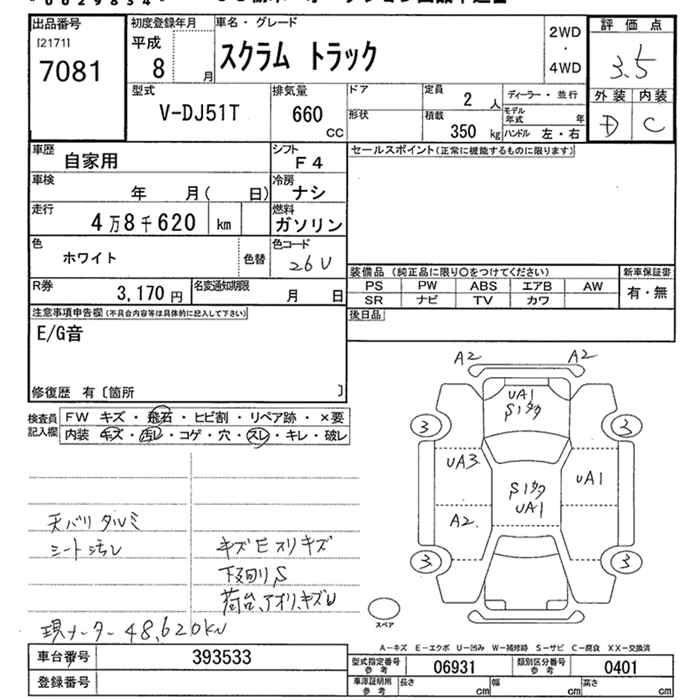 出品番号
[2171]
7081
初度登録年月
平成
8 月
車名・グレード
スクラム トラック
2WD
・
4WD
評価点
3.5
外装 内装
D C
型式
V-DJ51T
排気量
660
CC
ドア
形状
定員
2 人
積載
350 kg
ディーラー・並行
モデル
年式 年
ハンドル 左・右
車歴
自家用
シフト
F4
車検
年 月( 日)
冷房
ナシ
走行
4万8千620 km
燃料
ガソリン
色
ホワイト
色替
色コード
26U
R券
3,170 円
名変通知期限
月 日
セールスポイント(正常に機能するものに限ります)
装備品 (純正品に限り○をつけてください)
新車保証書
PS PW ABS エアB AW
有・無
SR ナビ TV カワ
後日品
注意事項申告欄(不具合内容等は具体的に記入して下さい)
E/G音
修復歴 有〔箇所 〕
検査員
記入欄
FW キズ・飛石・ヒビ割・リペア跡・×要
内装 キズ・汚レ・コゲ・穴・スレ・キレ・破レ
天バリタルミ
シート汚レ
キズモスリキズ
下回りS
荷台、アオリ、キズU
現メーター48,620km
A2 A2
UA1
S1タタ
3 3
UA3
UA1
S1タタ
UA1
A2
3 3
スペア
A-キズ E-エクボ U-凹み W-補修跡 S-サビ C-腐食 XX-交換済
車台番号
393533
登録番号
型式指定番号
参考
06931
類別区分番号
参考
0401
車庫証明用
参考
長さ cm
幅 cm
高さ cm